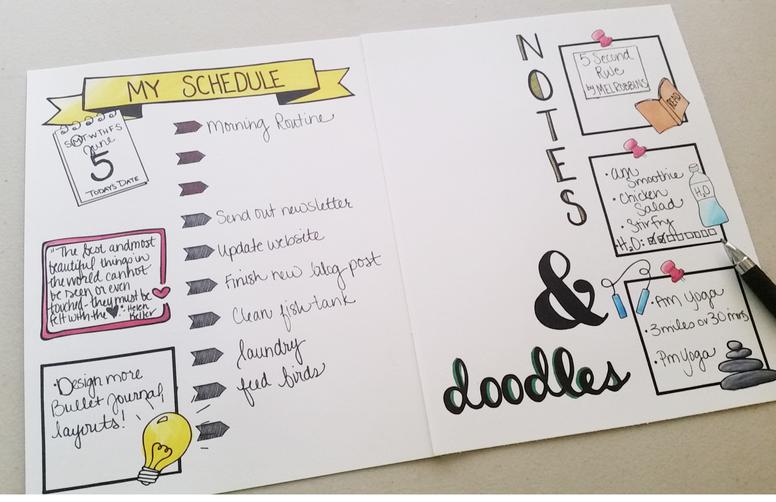 MY SCHEDULE
SMTWTHFS
June
5
TODAYS DATE
Morning Routine
Send out newsletter
Update website
Finish new blog post
Clean fish tank
laundry
feed birds
"The best and most
beautiful things in
the world cannot
be seen or even
touched-they must be
felt with the ♥."-Helen
Keller
·Design more
Bullet Journal
layouts!
NOTES
&
doodles
5 Second
Rule
by MEL ROBBINS
READ
·am
Smoothie
·Chicken
Salad
·Stirfry
H2O:
H2O
·Am yoga
·3miles or 30 mins
·Pm yoga